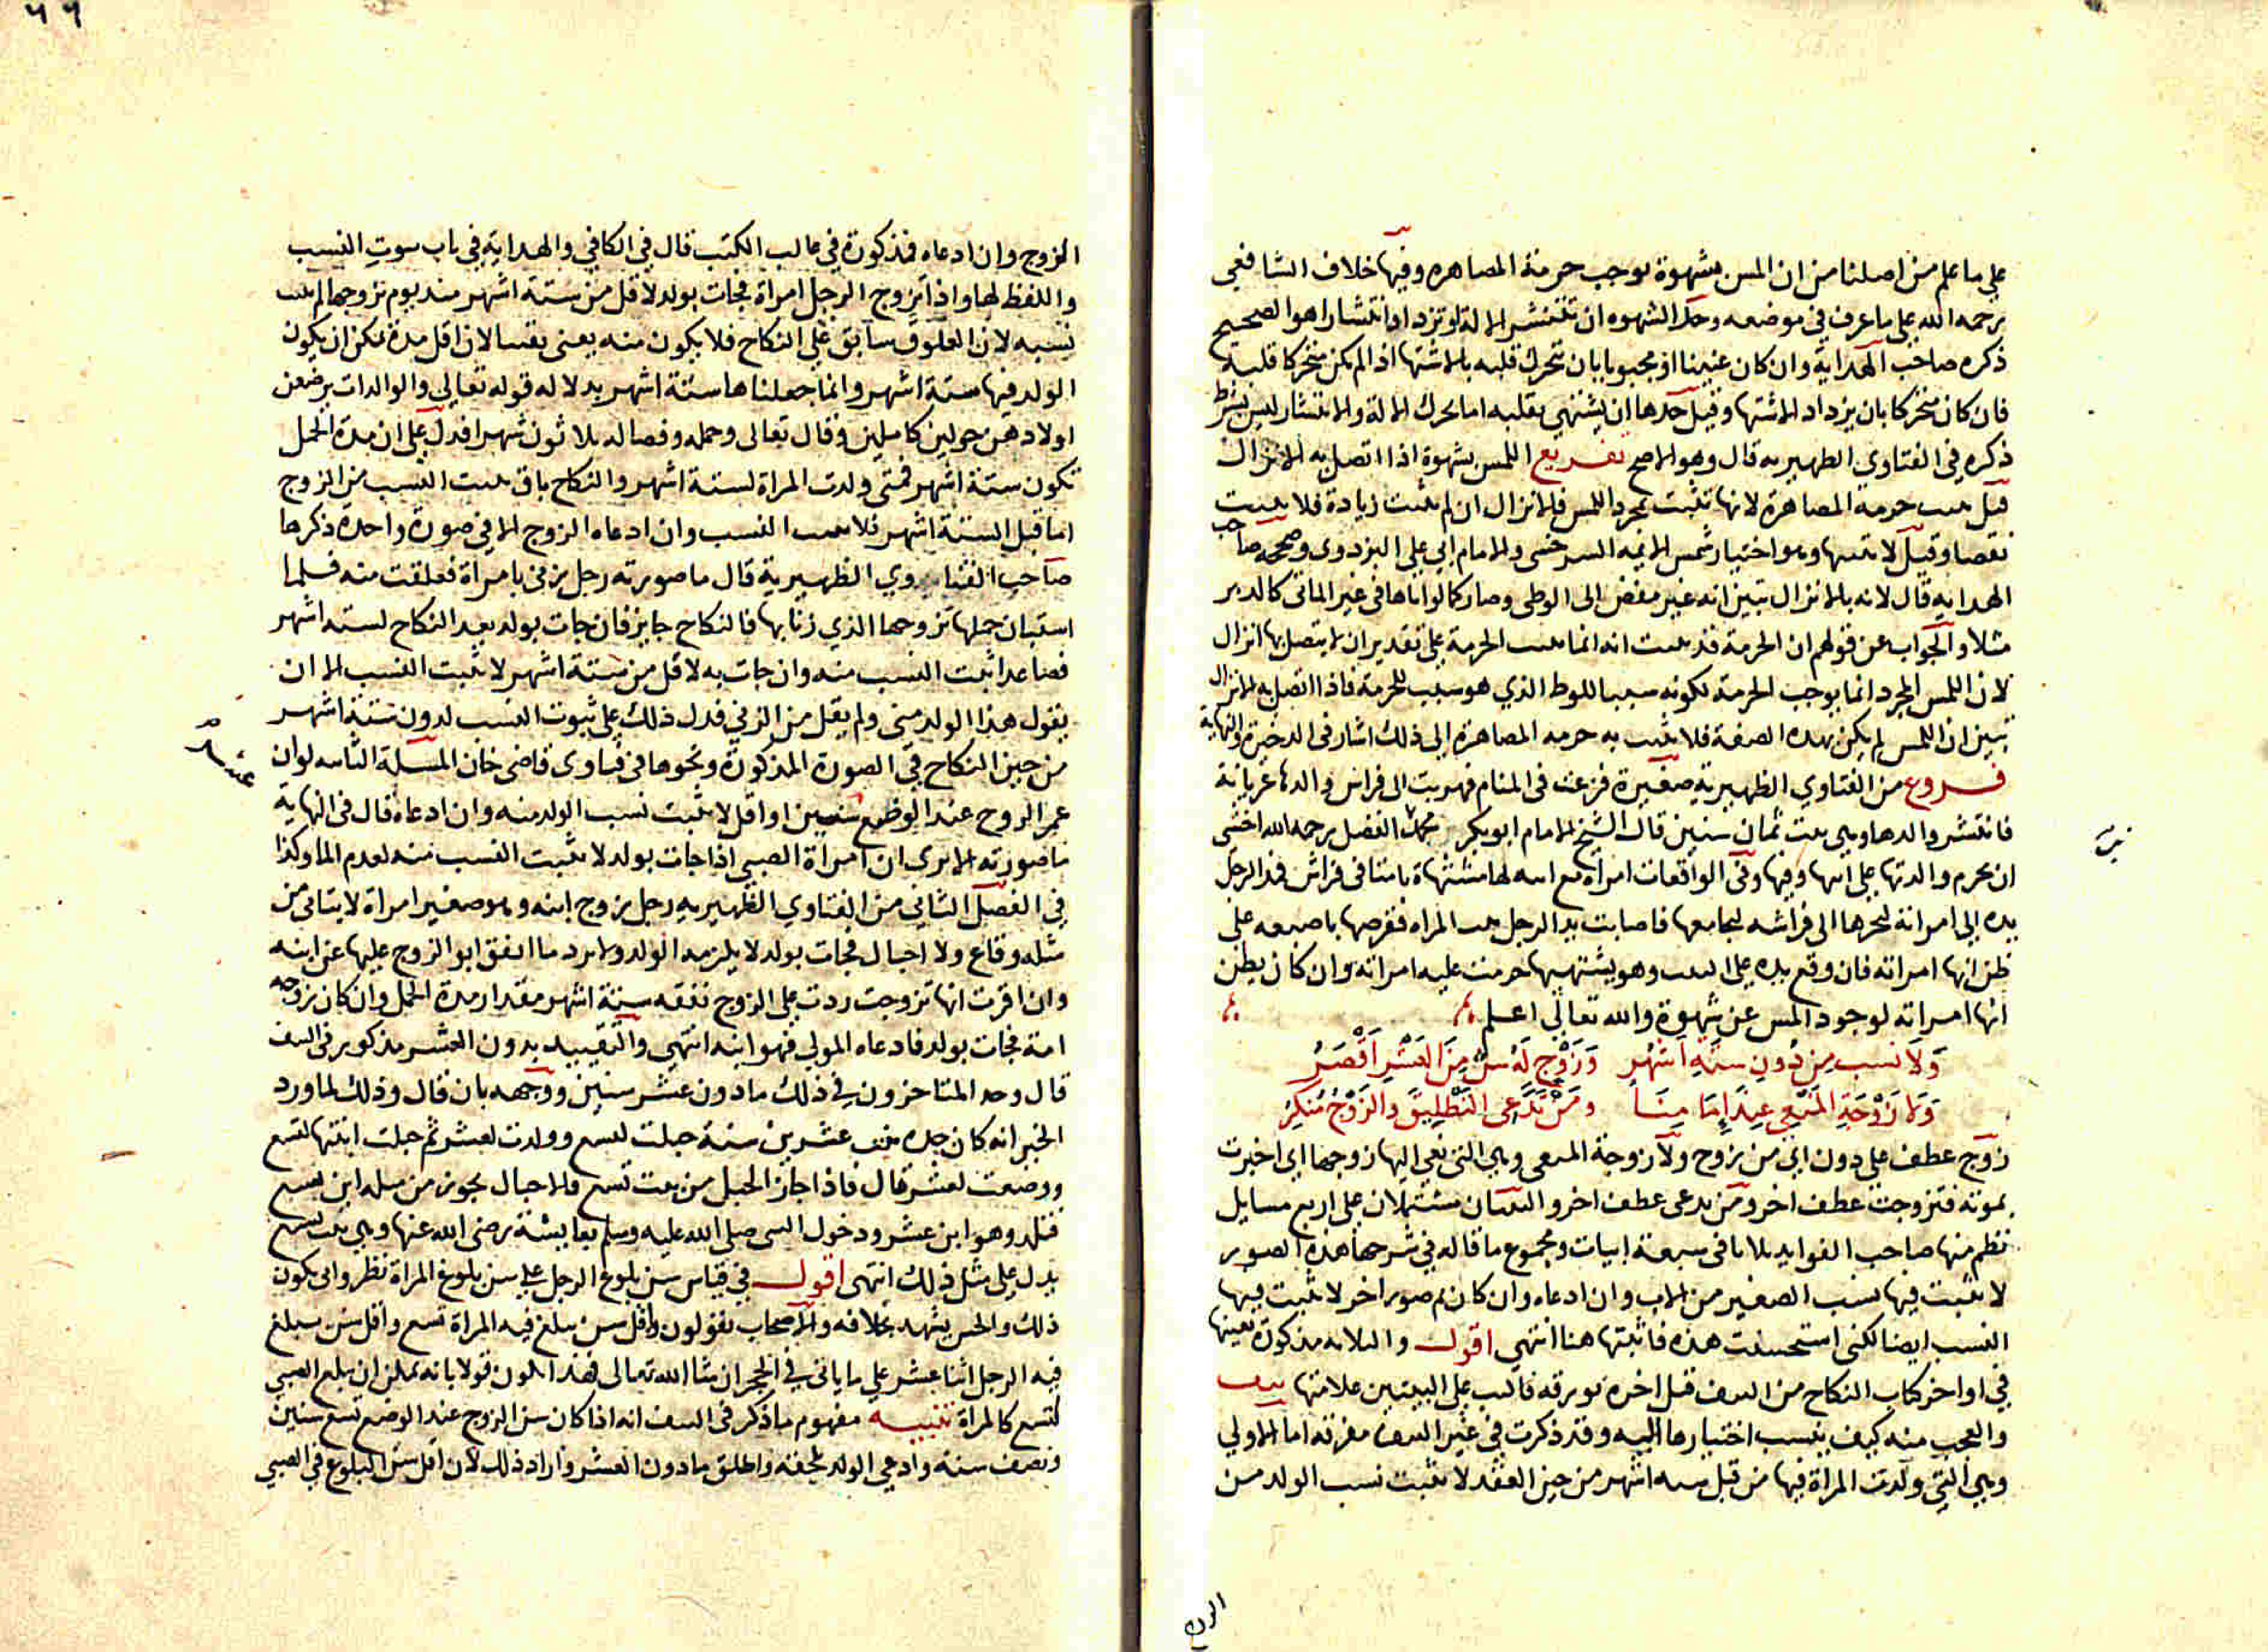 علي ما علم من اصلنا من ان المس بشهوة يوجب حرمة المصاهره وفيها خلاف الشافعي
رحمه الله علي ما عرف في موضعه وحد الشهوه ان تنتشر الالة او تزداد انتشارا هو الصحيح
ذكره صاحب الهداية وان كان عنينا او مجبوبا بان تحرك قلبه بالاشتها اذا لم يكن متحركا قلبه
فان كان متحركا بان يزداد الاشتها وقيل حدها ان يشتهي بقلبه اما تحرك الالة والانتشار ليس بشرط
ذكره في الفتاوي الظهيريه قال وهو الاصح تفريع اللمس بشهوة اذا اتصل به الانزال
قيل يثبت حرمة المصاهرة لانها تثبت بمجرد اللمس فالانزال ان لم يثبت زيادة فلا يثبت
نقصا وقيل لا يثبتها وهو اختيار شمس الايمه السرخسي والامام ابي علي البزدوى وصححه صاحب
الهدايه قال لانه بالانزال تبين انه غير مفض الى الوطى وصار كما لو اتاها في غير الماتى كالدبر
مثلا والجواب عن قولهم ان الحرمة قد ثبتت انه انما يثبت الحرمة على تقدير ان لا يتصل بها انزال
لان اللمس المجرد انما يوجب الحرمة لكونه سببا للوط الذي هو سبب للحرمة فاذا اتصل به الانزال
تبين ان اللمس لم يكن بهذه الصفة فلا يثبت به حرمه المصاهرة الي ذلك اشار في الذخيرة والنهاية
فروع من الفتاوي الظهيرية صغيرة فزعت في المنام فهربت الى فراش والدها عريانة
فانتشر والدها وهي بنت ثمان سنين قال الشيخ الامام ابو بكر محمد بن الفضل رحمه الله اخشى
ان تحرم والدتها على ابيها وفيها وفى الواقعات امراة مع ابنه لها مشتهاة باتتا في فراش فمد الرجل
يده الى امراته ليجرها الى فراشه ليجامعها فاصابت يد الرجل بنت المراه فقرصها باصبعه على
ظن انها امراته فان وقع يده على البنت وهو يشتهيها حرمت عليه امراته وان كان يظن
انها امراته لوجود المس عن شهوة والله تعالي اعلم
وَلَا نسب مِن دُونِ ستَةِ اَشهُرٍ وَزَوْجٍ لَهُ سِنٌّ مِنَ العَشرِ اَقْصَرُ
وَلَا زَوْجَةِ المَنْعِي عِنْدَ اِمَامِنَا وَمَنْ تَدَّعِى التَّطْلِيقَ والزَوْجُ مُنكِرُ
زوج عطف علي دون اي من زوج ولا زوجة المنعى وهي التي نعي اليها زوجها اي اخبرت
بموته فتزوجت عطف اخر ومن تدعى عطف اخر والبيتان مشتملان على اربع مسايل
نظم منها صاحب الفوايد ثلاثا في سبعة ابيات ومجموع ما قاله في شرحها هذه الصور
لا يثبت فيها نسب الصغير من الاب وان ادعاه وان كان ثم صور اخر لا يثبت فيها
النسب ايضا لكنى استحسنت هذه فاثبتها هنا انتهي اقول والثلاثه مذكورة بعينها
في اواخر كتاب النكاح من قبل اخره بورقه فاكتب على البيتين علامتها
والعجب منه كيف ينسب اختيارها اليه وقد ذكرت في غير مفرقه اما الاولي
وهي التي ولدت المراة فيها من قبل سته اشهر من حين العقد لا يثبت نسب الولد من
الزوج
الزوج وان ادعاه فمذكورة في غالب الكتب قال في الكافي والهداية في باب ثبوت النسب
واللفظ لها واذا تزوج الرجل امراة فجات بولد لاقل من ستة اشهر منذ يوم تزوجها لم يثبت
نسبه لان العلوق سابق علي النكاح فلا يكون منه يعنى يقينا لان اقل مدة يمكن ان يكون
الولد فيها ستة اشهر وانما جعلناها ستة اشهر بدلالة قوله تعالي والوالدات يرضعن
اولادهن حولين كاملين وقال تعالى وحمله وفصاله ثلاثون شهرا فدل على ان مدة الحمل
تكون ستة اشهر فمتى ولدت المراة لستة اشهر والنكاح باق يثبت النسب من الزوج
اما قبل الستة اشهر فلا يثبت النسب وان ادعاه الزوج الا في صورة واحدة ذكرها
صاحب الفتاوي الظهيرية قال ما صورته رجل زنى بامراة فعلقت منه فلما
استبان حملها تزوجها الذي زنا بها فالنكاح جايز فان جات بولد بعد النكاح لسته اشهر
فصاعدا ثبت النسب منه وان جات به لاقل من ستة اشهر لا يثبت النسب الا ان
يقول هذا الولد منى ولم يقل من الزني فدل ذلك علي ثبوت النسب لدون ستة اشهر
من حين النكاح في الصورة المذكورة ونحوها في فتاوى قاضى خان المسلة الثانيه لو ان
عمر الزوج عند الوضع سنين او اقل لا يثبت نسب الولد منه وان ادعاه قال في النهاية
ما صورته الا ترى ان امراة الصبي اذا جات بولد لا يثبت النسب منه لعدم الما وكذا
في الفصل الثاني من الفتاوي الظهيريه رجل زوج ابنه وهو صغير امراة لا يتاتى من
مثله وقاع ولا احبال فجات بولد لا يلزمه الولد ولا يرد ما انفق ابو الزوج عليها عن ابنه
وان اقرت انها تزوجت ردت على الزوج نفقه ستة اشهر مقدار مدة الحمل وان كان زوجه
امة فجات بولد فادعاه المولي فهو ابنه انتهي والتقييد بدون العشر مذكور في
قال وحد المتاخرون في ذلك ما دون عشر سنين ووجهه بان قال وذلك لما ورد
الخبر انه كان جدة بنت عشرين سنة حبلت لتسع وولدت لعشر ثم حبلت ابنتها لتسع
ووضعت لعشر قال فاذا جاز الحبل من بنت تسع فالاحبال يجوز من مثله ابن تسع
فتلد وهو ابن عشر ودخول النبى صلى الله عليه وسلم بعايشة رضى الله عنها وهي بنت تسع
يدل على مثل ذلك انتهى اقول في قياس سن بلوغ الرجل على سن بلوغ المراة نظر واني يكون
ذلك والحس يشهد بخلافه والاصحاب يقولون واقل سن يبلغ فيه المراة تسع واقل سن يبلغ
فيه الرجل اثنا عشر علي ما ياتى في الحجر ان شا الله تعالى فهذا يكون قولا بانه يمكن ان يبلغ الصبي
لتسع كالمراة تنبيه مفهوم ما ذكر في انه اذا كان سن الزوج عند الوضع تسع سنين
ونصف سنة وادعي الولد لحقه واطلق ما دون العشر واراد ذلك لان اقل سن البلوغ في الصبي